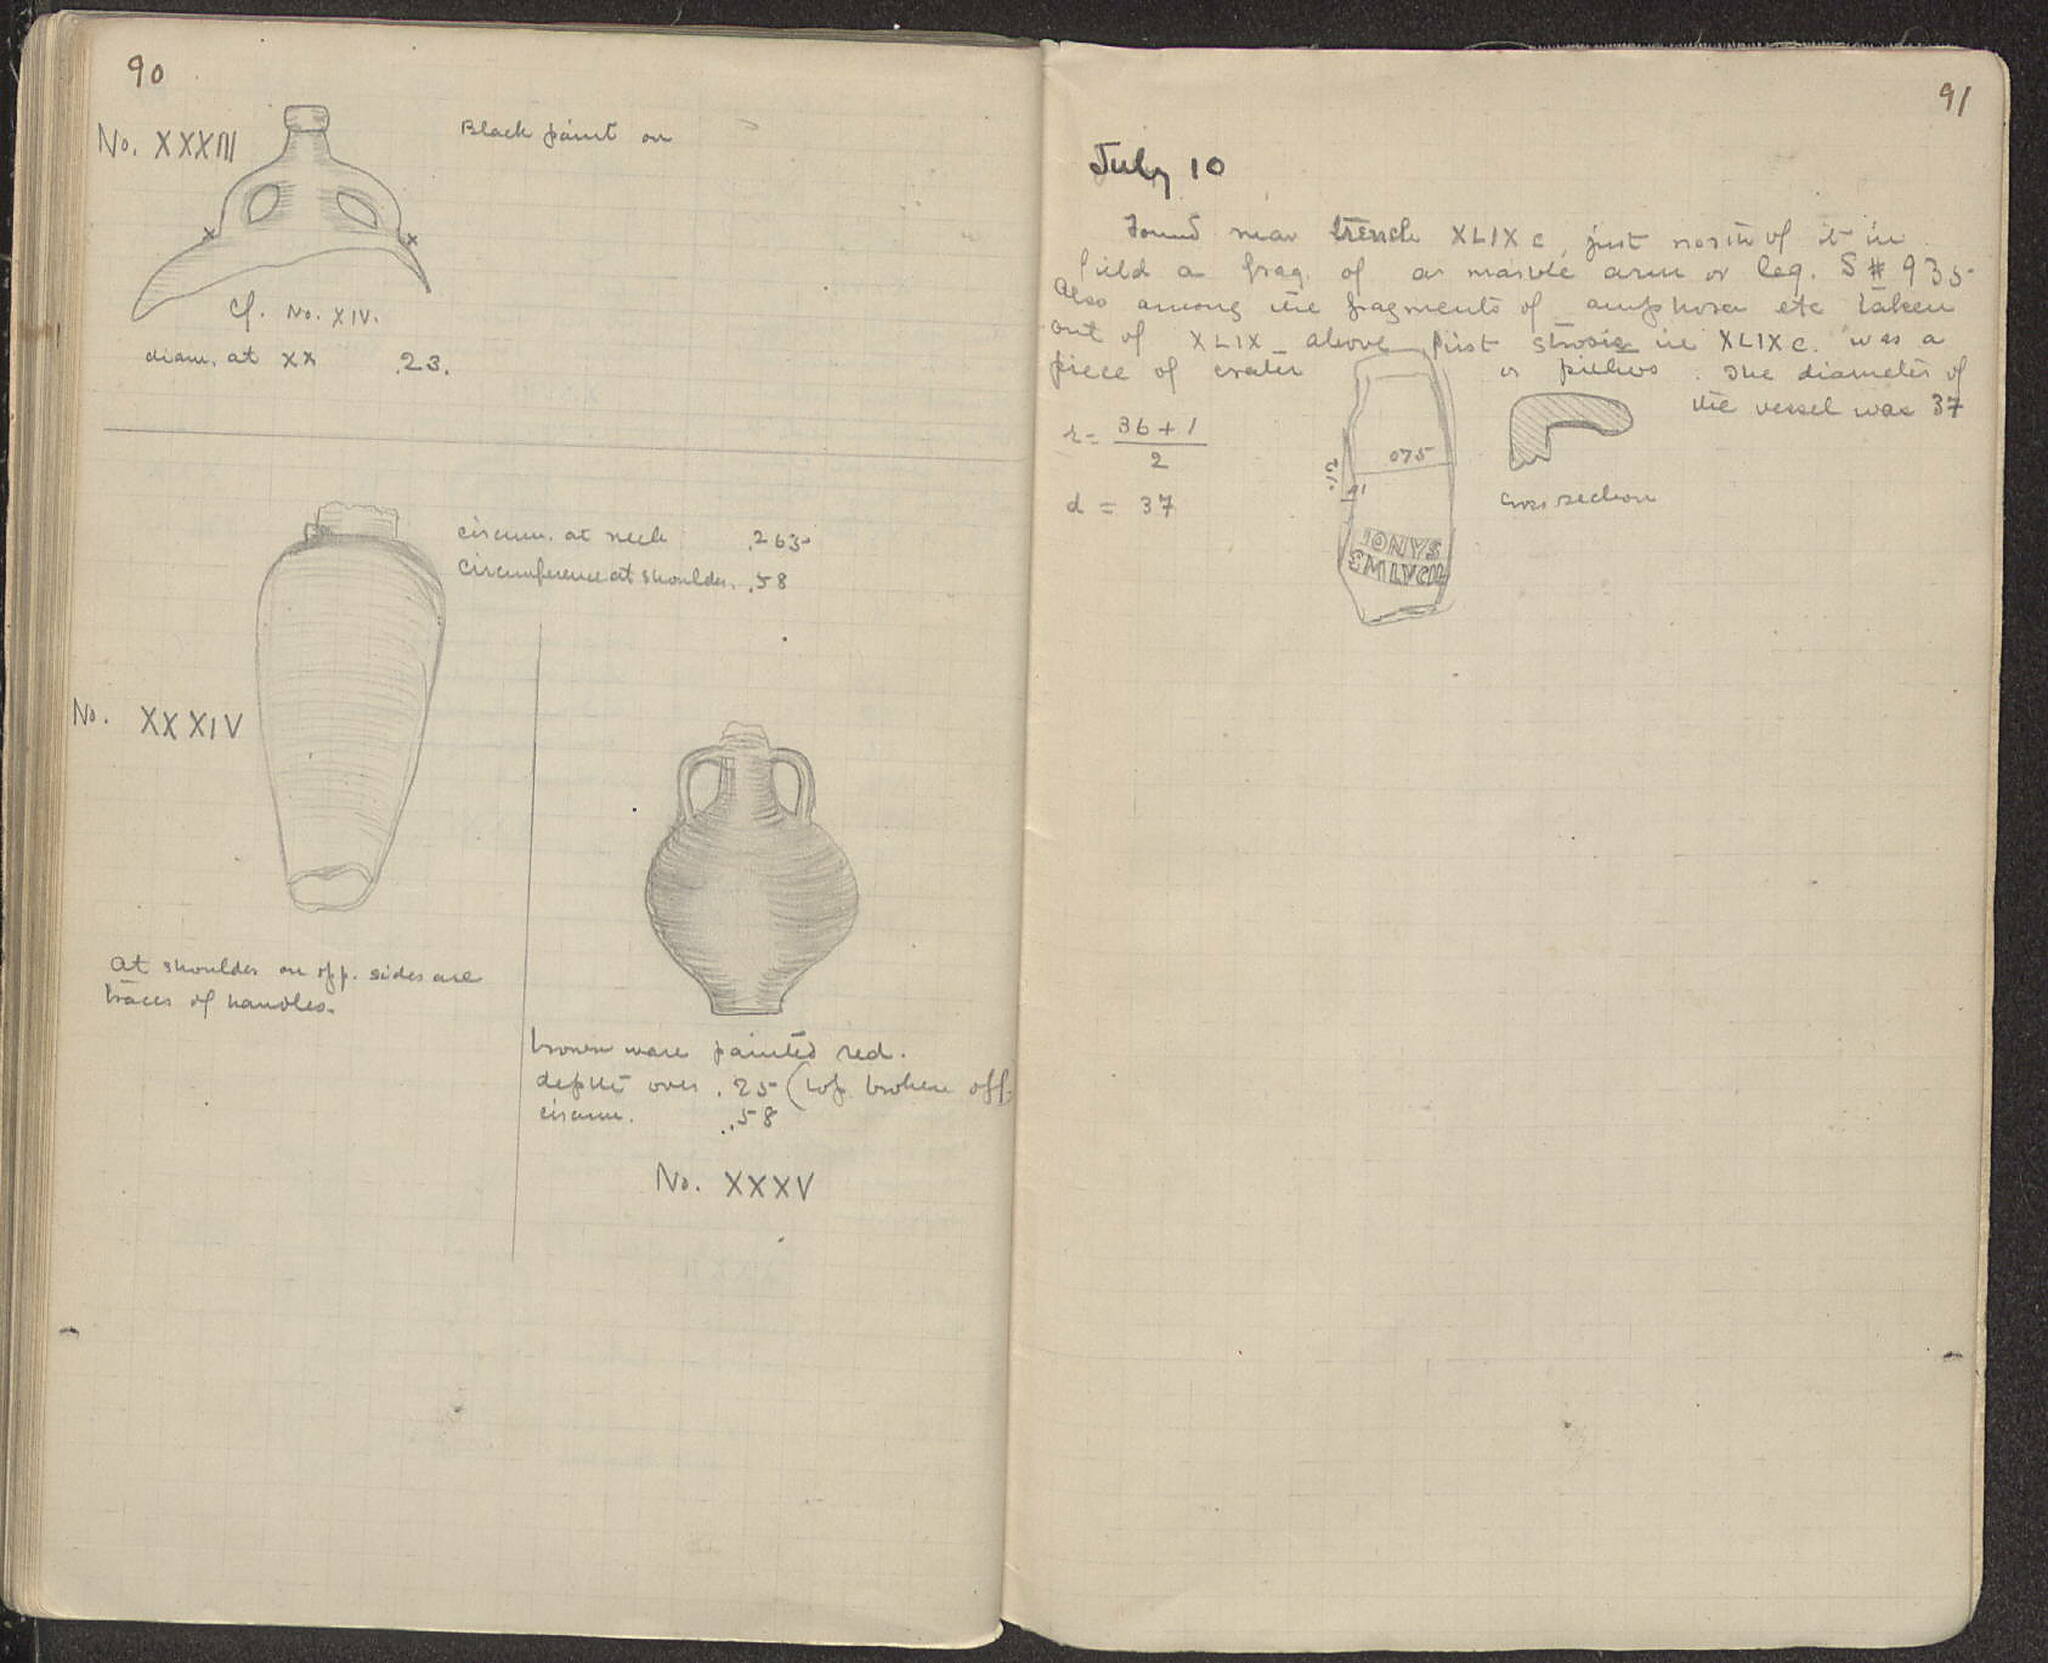 90
No. XXXIII
Black paint on
x x
cf. No. XIV.
diam. at XX .23.
circum. at neck .265
circumference at shoulder. .58
No. XXXIV
at shoulder on opp. sides are
traces of handles.
brown ware painted red.
depth over .25 (top broken off.
circum. .58
No. XXXV
91
July 10
Found near trench XLIX c, just north of it in
field a frag. of a marble arm or leg. S # 935
Also among the fragments of amphora etc taken
out of XLIX above first strosis in XLIX c. was a
piece of crater or pithos. The diameter of
the vessel was 37
r = 36 + 1
2
d = 37
.075
.12
cross section
IONYS
SMLVCIL